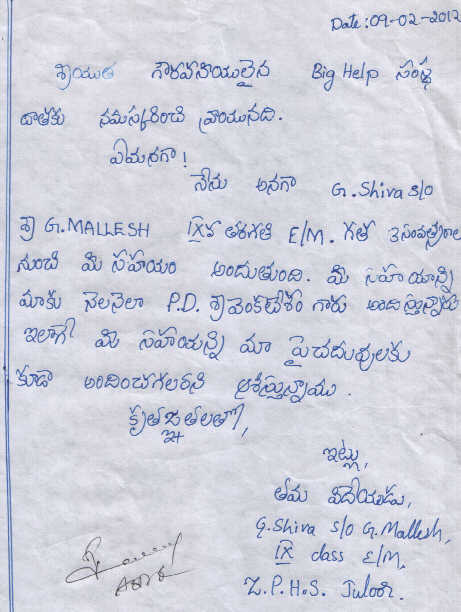 Date: 09-02-2012
శ్రీయుత గౌరవనీయులైన Big Help సంస్థ
దాతకు నమస్కరించి వ్రాయునది.
ఏమనగా!
నేను అనగా G. Shiva s/o
శ్రీ G. MALLESH IXవ తరగతి E/M. గత 3 సంవత్సరాల
నుంచి మీ సహాయం అందుతుంది. మీ సహాయాన్ని
మాకు నెలనెలా P.D. శ్రీ వెంకటేశం గారు అందిస్తున్నారు
ఇలాగే మీ సహాయాన్ని మా పైచదువులకు
కూడా అందించగలరని ఆశిస్తున్నాము.
కృతజ్ఞతలతో,
ఇట్లు,
తమ విదేయుడు,
G. Shiva s/o G. Mallesh,
IX class E/M.
Z.P.H.S. Juloor.